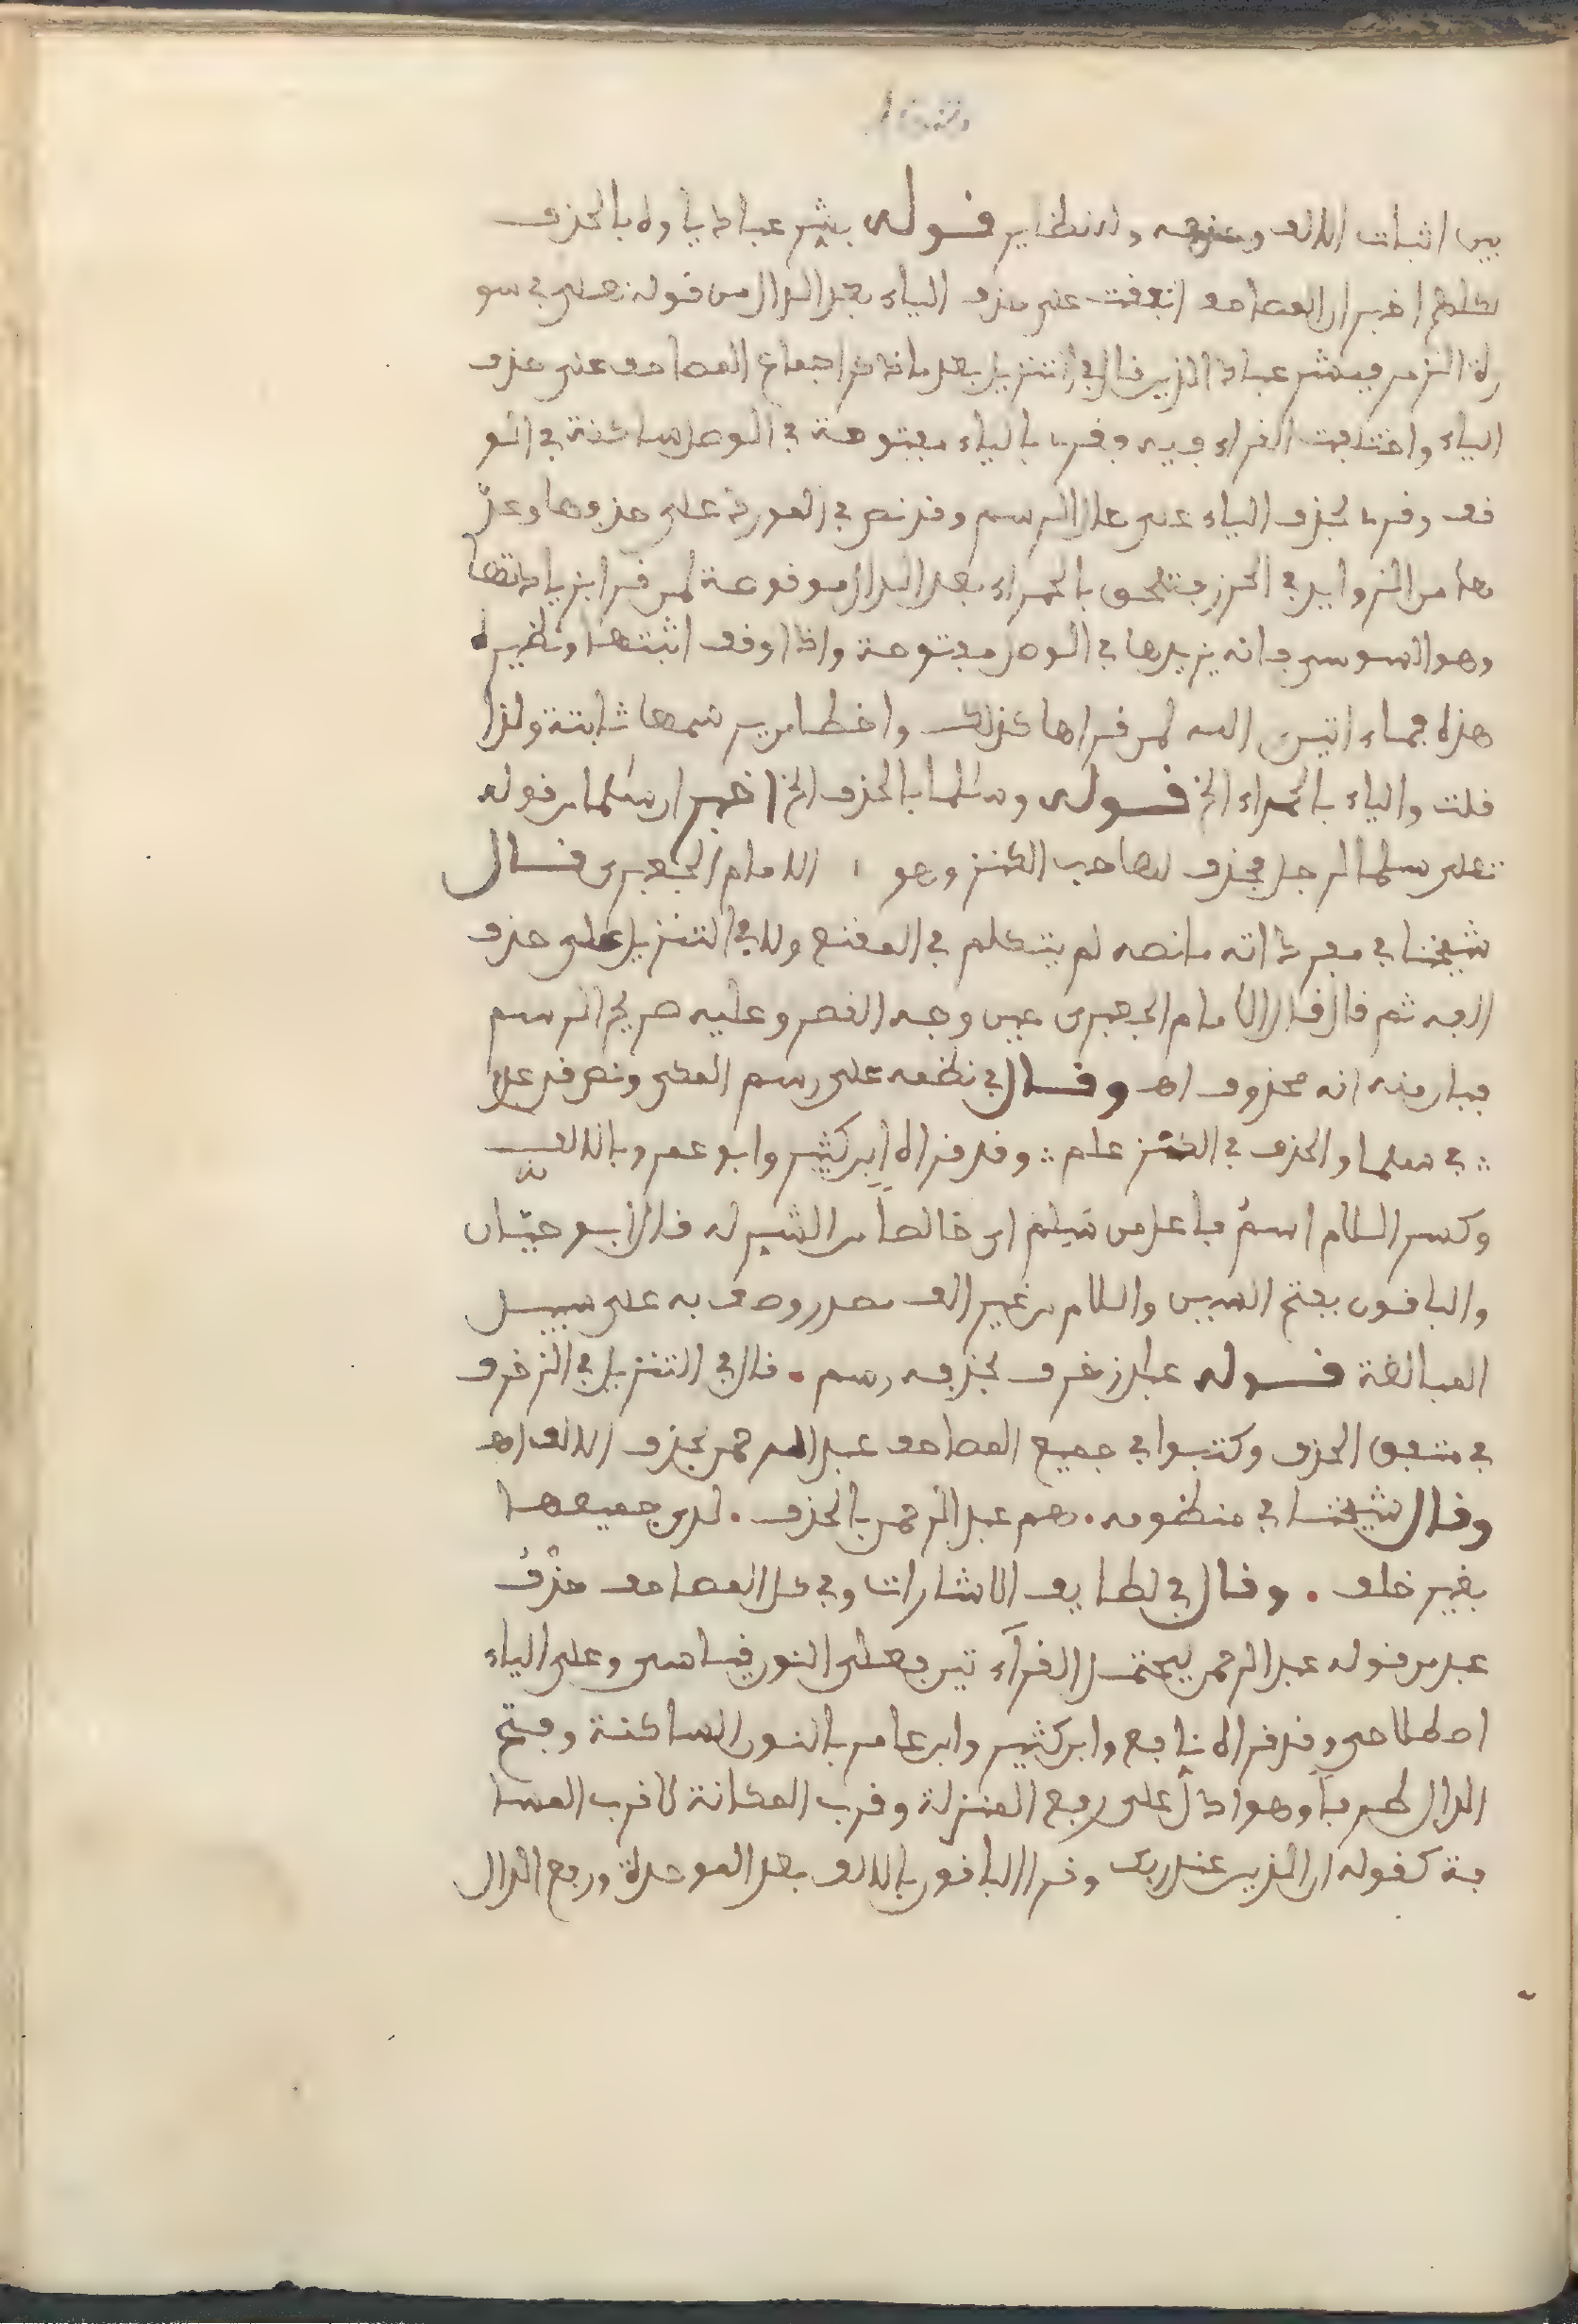 بين اثبات الالف وحذفه وله نظاير قوله بشر عباد ياوه بالحذف
اخبر ان المصاحف اتفقت على حذف الياء بعد الدال من قوله تعلى في سو
رة الزمر فبشر عباد الذين قال في التنزيل بعد ما ذكر اجماع المصاحف على حذف
الياء واختلفت القراء فيه وقرء بالياء مفتوحة في الوصل ساكنة في الو
قف وقرء بحذف الياء على حال الرسم وقد نص في المورد على حذفها وعدّ
ها من الزوايد في الحرز فتلحق بالحمراء بعد الدال موقوعة لمن قرا بزيادتها
وهو السوسي فانه يزيدها في الوصل مفتوحة واذا وقف اثبتها ونظيره
هذه فماء اتين الله لمن قراها كذلك واخطا من يرسمها ثابتة ولذا
قلت والياء بالحمراء الخ قوله وسلما بالحذف الخ اخبر ان سلما من قوله
تعلى سلما لرجل بحذف لصاحب الكنز وهو الامام الجعبري قال
شيخنا في مفرداته ما نصه لم يتكلم في المقنع ولا في التنزيل على حذف
الفه ثم قال قال الامام الجعبري عين وجه القصر وعليه صريح الرسم
فبان منه انه محذوف اه وقال في نظمه على رسم المكي ونص قد عدا
في سلما والحذف في الكنز علم وقد قراه ابن كثير وابو عمرو بالالف
وكسر اللام اسم فاعل من سلم اي خالصا من الشركه قال ابو حيان
والباقون بفتح السين واللام من غير الف مصدر وصف به على سبيل
المبالغة قوله عبد زخرف بحذفه رسم . قال في التنزيل في الزخرف
في متفق الحذف وكتبوا في جميع المصاحف عبد الرحمن بحذف الالف اه
وقال شيخنا في منظومه . هم عبد الرحمن بالحذف . لدى جميعها
بغير خلف . وقال في لطايف الاشارات وفي كل المصاحف حذف
عبد من قوله عبد الرحمن ليحتمل القراء تين فعلى النون قياسى وعلى الياء
اصطلاحى وقد قراه نافع وابن كثير وابن عامر بالنون الساكنة وفتح
الدال ظرفا وهو ادل على رفع المنزلة وقرب المكانة لا قرب المسا
فة كقوله ان الذين عند ربك وقرا الباقون بالالف بعد الموحدة ورفع الدال